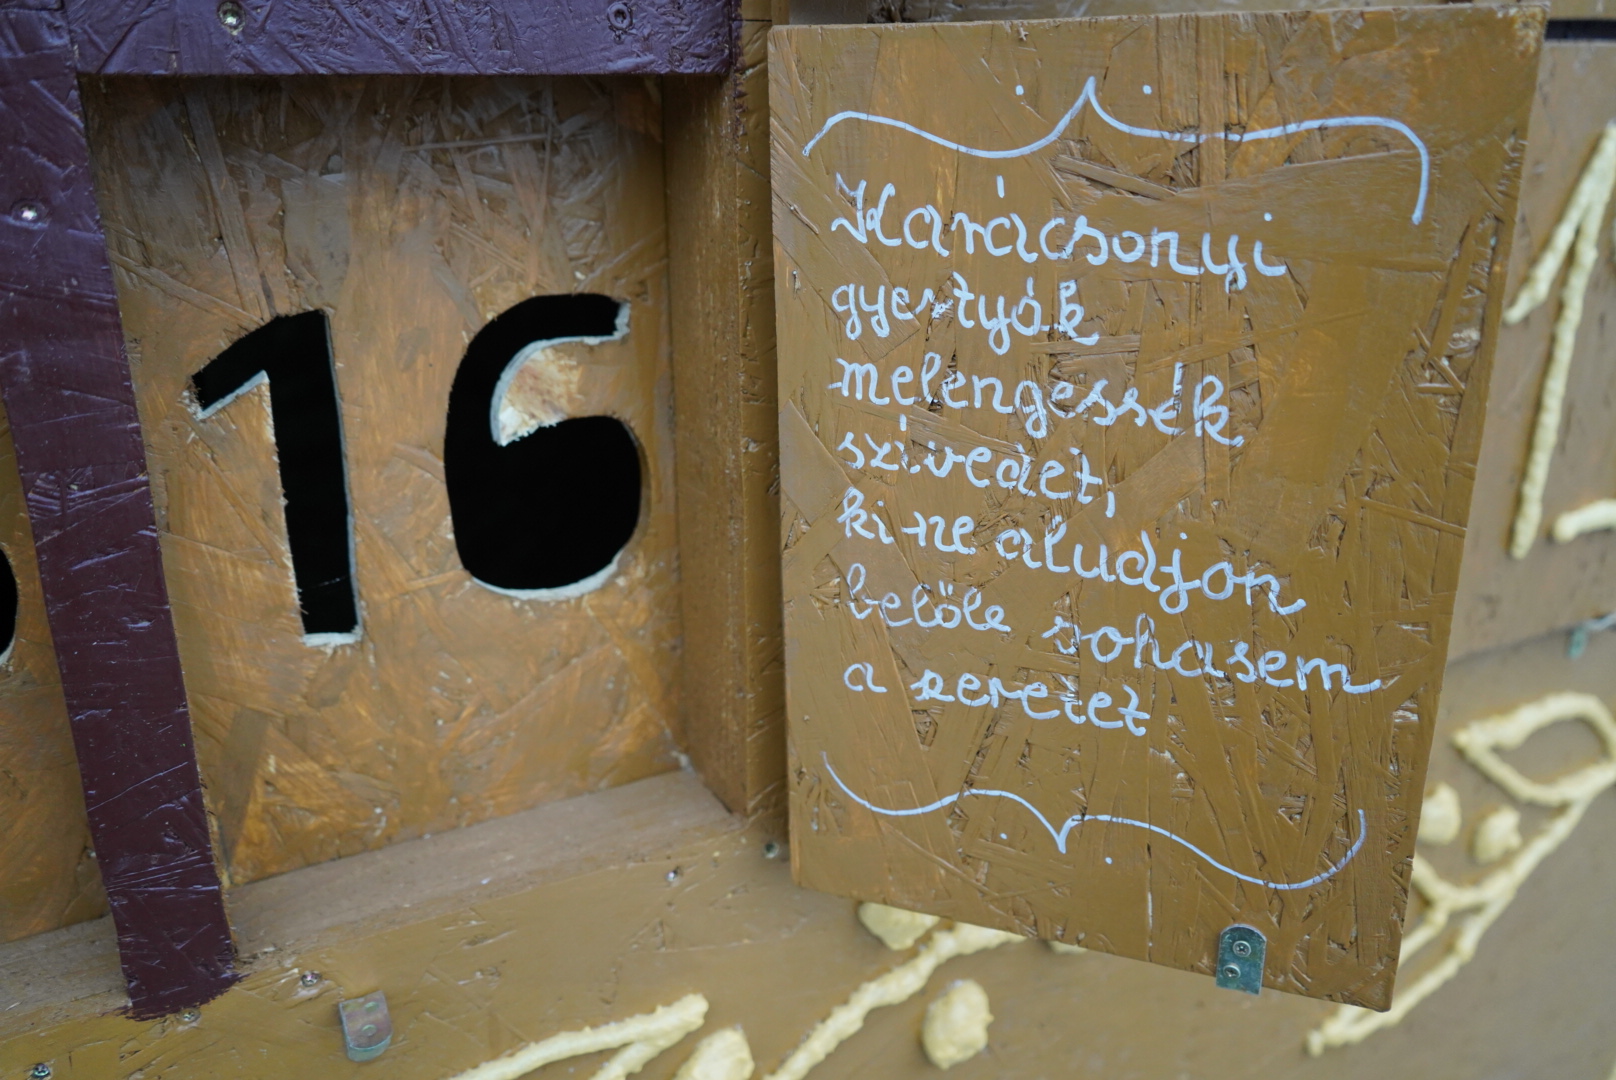 16
Karácsonyi
gyertyák
melengessék
szívedet,
ki ne aludjon
belőle sohasem
a szeretet
1